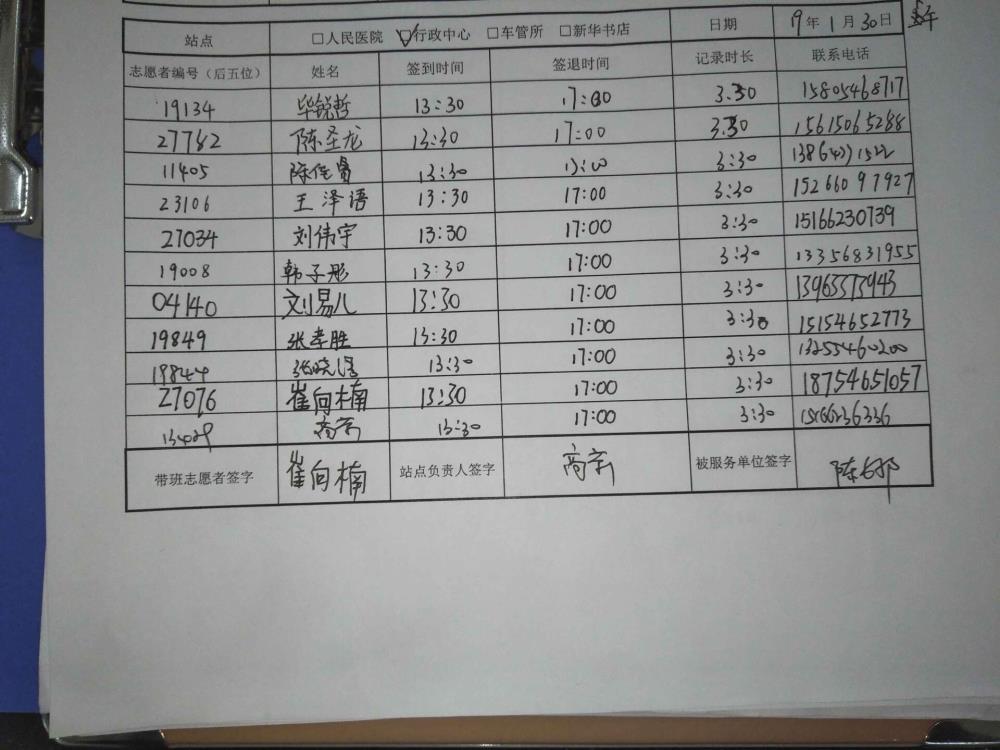 站点 □人民医院 ☑行政中心 □车管所 □新华书店 日期 19年1月30日
志愿者编号（后五位） 姓名 签到时间 签退时间 记录时长 联系电话
19134 毕锐哲 13:30 17:00 3:30 15805468717
27782 陈圣龙 13:30 17:00 3:30 15615065288
11405 陈佳贤 13:30 17:00 3:30
23106 王泽语 13:30 17:00 3:30 15266097927
27034 刘伟宇 13:30 17:00 3:30 15166230739
19008 韩子彤 13:30 17:00 3:30 13356831955
04140 刘易儿 13:30 17:00 3:30
19849 张孝胜 13:30 17:00 3:30 15154652773
19844 张晓 13:30 17:00 3:30 13255460200
27076 崔向楠 13:30 17:00 3:30 18754651057
商 13:30 17:00 3:30
带班志愿者签字 崔向楠 站点负责人签字 商 被服务单位签字 陈